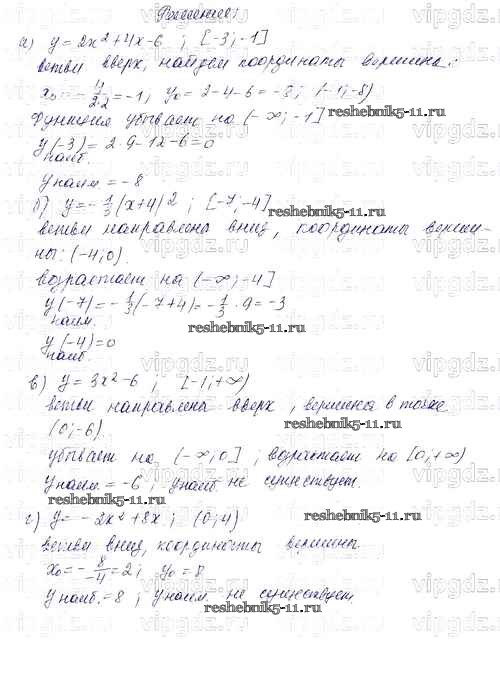 Решение:
а) y = 2x² + 4x - 6 ; [-3; -1]
ветви вверх, найдем координаты вершины:
x₀ = - 4/2·2 = -1; y₀ = 2 - 4 - 6 = -8; (-1; -8)
Функция убывает на (-∞; -1]
y(-3) = 2·9 - 12 - 6 = 0
наиб.
y наим = -8
б) y = - 1/3 (x+4)² ; [-7; -4]
ветви направлены вниз, координаты верши-
ны: (-4; 0).
возрастает на (-∞; -4]
y(-7) = - 1/3 (-7+4) = - 1/3 · 9 = -3
наим.
y(-4) = 0
наиб.
в) y = 3x² - 6 ; [-1; +∞)
ветви направлены вверх, вершина в точке
(0; -6)
убывает на (-∞; 0] ; возрастает на [0; +∞)
y наим = -6; y наиб. не существует.
г) y = - 2x² + 8x ; (0; 4)
ветви вниз, координаты вершины
x₀ = - 8/-4 = 2; y₀ = 8
y наиб. = 8 ; y наим. не существует.
reshebnik5-11.ru
vipgdz.ru